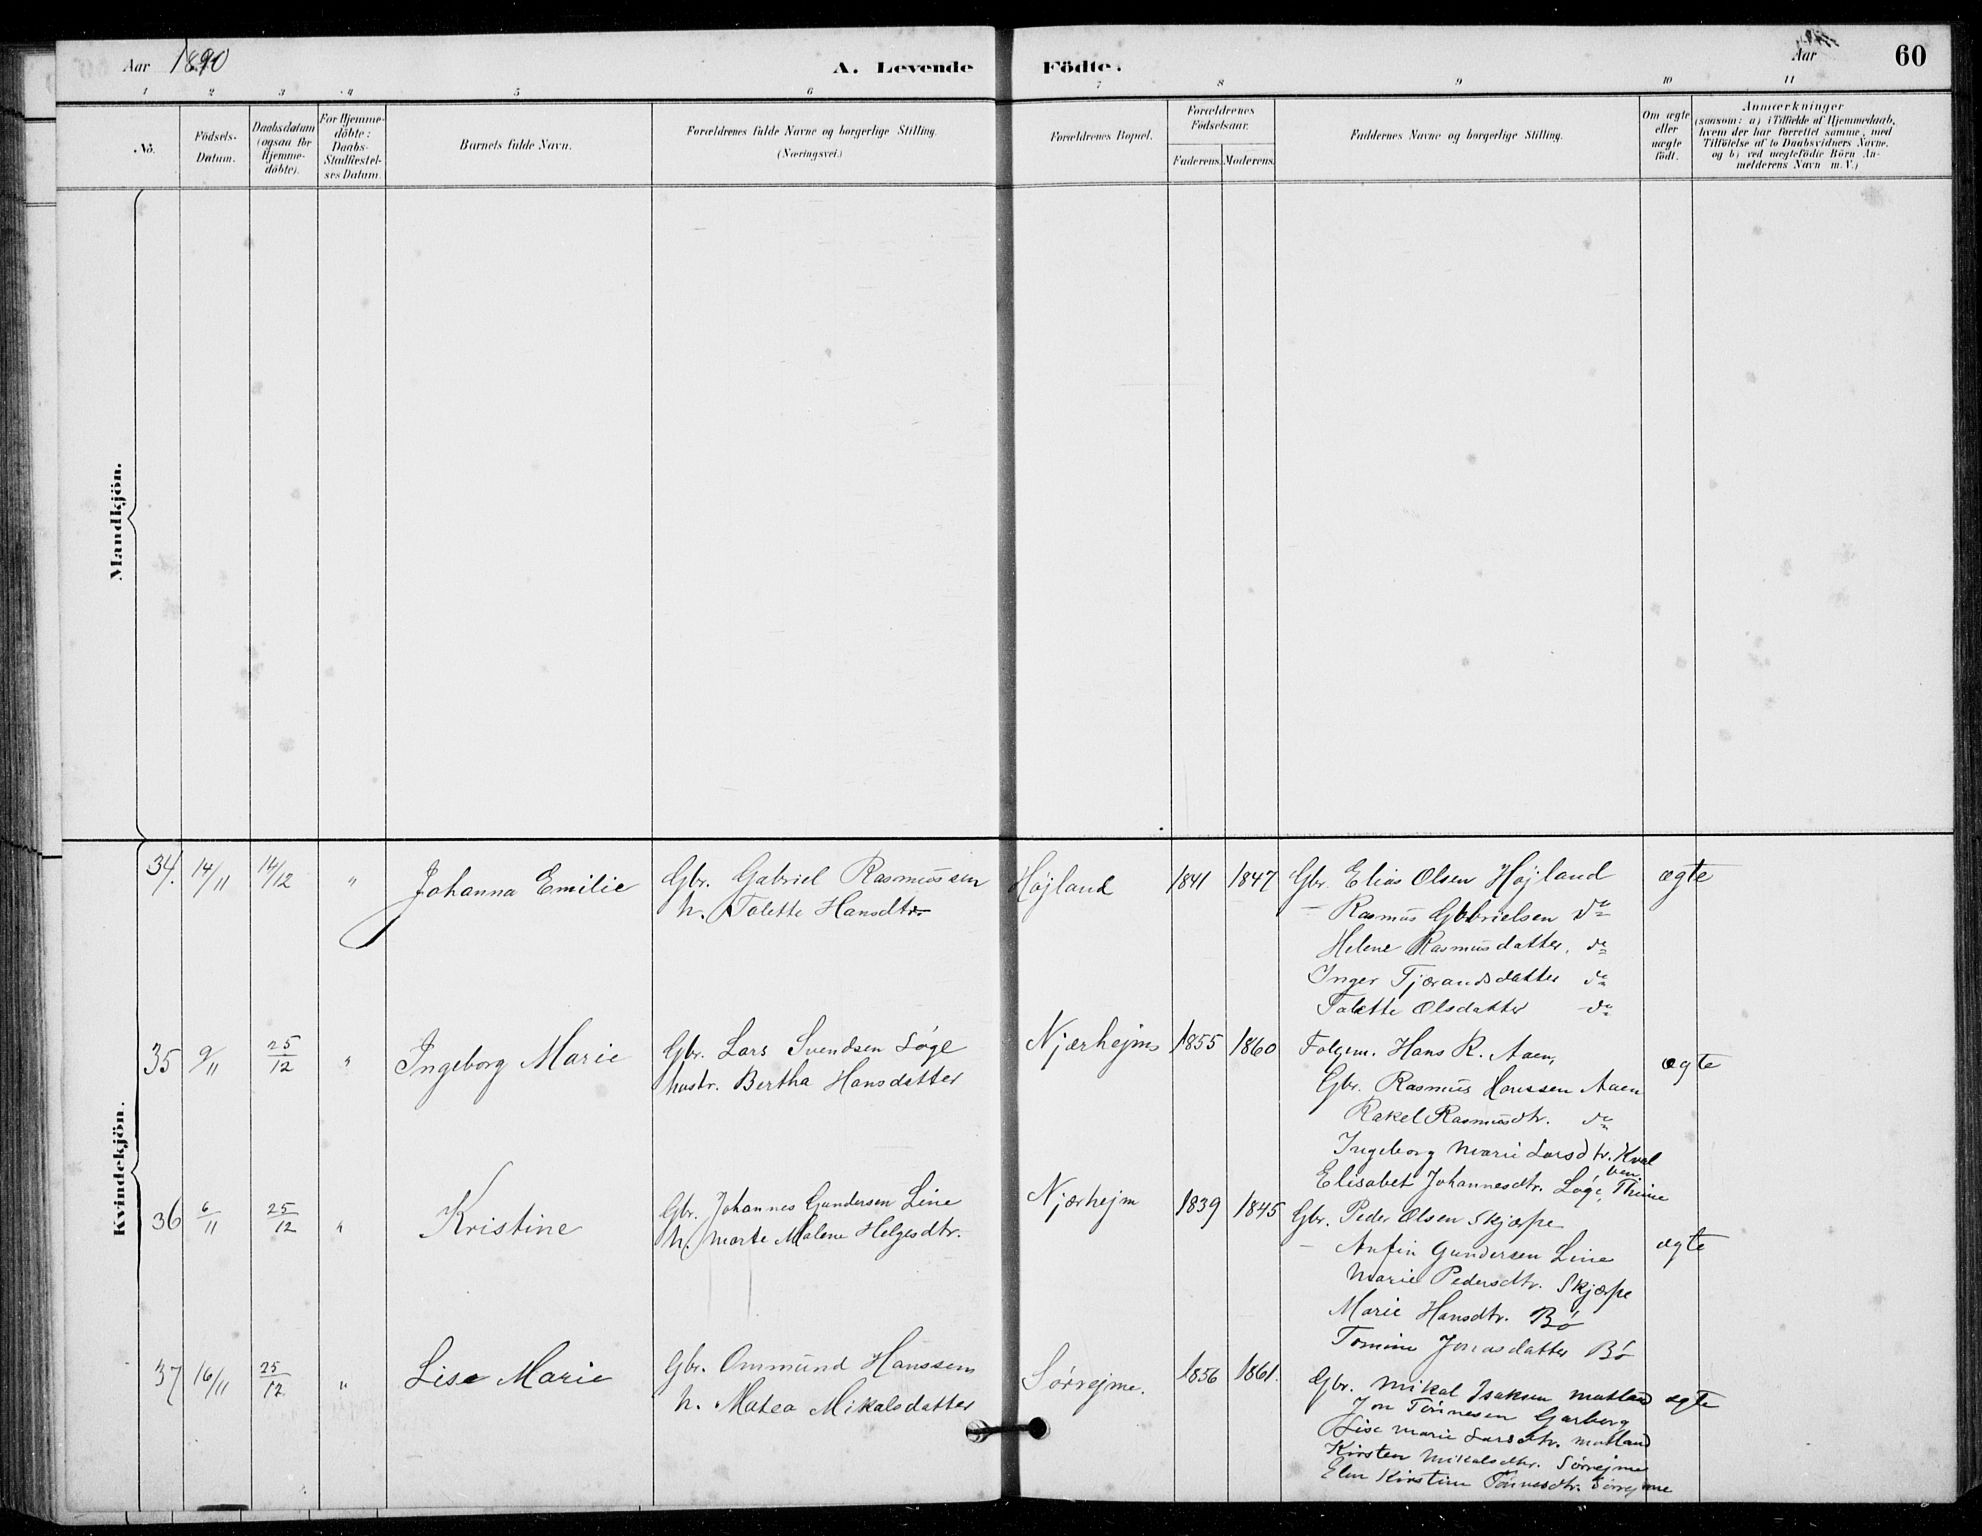 Aar 1890
A. Levende Födte.
Aar
60
1 2 3 4 5 6 7 8 9 10 11
No.
Födsels-Datum.
Daabsdatum (ogsaa for Hjemme-döbte).
For Hjemme-döbte: Daabs-Stadfæstel-ses Datum.
Barnets fulde Navn.
Forældrenes fulde Navne og borgerlige Stilling.
(Næringsvei.)
Forældrenes Bopæl.
Forældrenes Födselsaar.
Faderens. Moderens.
Faddernes Navne og borgerlige Stilling.
Om ægte eller uægte födt.
Anmærkninger
(saasom: a) i Tilfælde af Hjemmedaab,
hvem der har forrettet samme, med
Tilföielse af to Daabsvidners Navne,
og b) ved uægtefödte Börn An-
melderens Navn m.V.)
Mandkjön.
Kvindekjön.
34. 14/11 14/12 " Johanna Emilie
Gbr. Gabriel Rasmussen
h. Tolette Hansdtr.
Højland 1841 1847
Gbr. Elias Olsen Højland
— Rasmus Gabrielsen do
Helene Rasmusdatter. do
Inger Tjærandsdatter do
Tolette Olsdatter do
ægte
35 9/11 25/12 " Ingeborg Marie
Gbr. Lars Svendsen Løge
hustr. Bertha Hansdatter
Njærhejm 1855 1860
Folgem. Hans R. Aaen,
Gbr. Rasmus Hanssen Aaen
Rakel Rasmusdtr. do
Ingeborg Marie Larsdtr. Kval
ben
Elisabet Johannesdtr. Løge, Thime
ægte
36 6/11 25/12 " Kristine
Gbr. Johannes Gundersen Line
h. Marte Malene Helgesdtr.
Njærhejm 1839 1845
Gbr. Peder Olsen Skjærpe
— Anfin Gundersen Line
Marie Pedersdtr. Skjærpe
Marie Hansdtr. Bø
Tomine Jonasdatter Bø
ægte
37 16/11 25/12 " Lise Marie
Gbr. Ommund Hanssen
h. Matea Mikalsdatter
Sørrejme. 1856 1861.
Gbr. Mikal Isaksen Motland
Jon Tønnesen Garborg
Lise Marie Larsdtr. Motland
Kirsten Mikalsdtr. Sørrejme
Elen Kirstine Tønnesdtr. Sørrejme
ægte